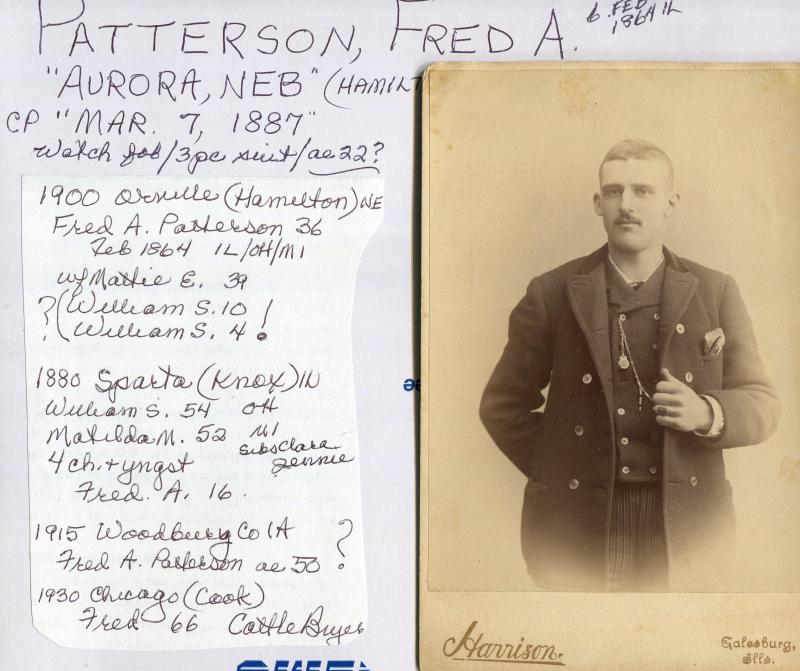 PATTERSON, FRED A.
b. FEB
1864 IL
"AURORA, NEB" (HAMILT
CP "MAR. 7, 1887"
Watch fob/3pc suit/ae 22?
1900 Orville (Hamilton) NE
Fred A. Patterson 36
Feb 1864 IL/OH/MI
wf Mattie E. 39
? (William S. 10 !
? (William S. 4 !
1880 Sparta (Knox) IN
William S. 54 OH
Matilda M. 52 MI
sibs Clara
Jennie
4 ch. + yngst
Fred. A. 16.
1915 Woodbury Co IA ?
Fred A. Patterson ae 50
1930 Chicago (Cook)
Fred 66 Cattle Buyer
Harrison.
Galesburg,
Ills.